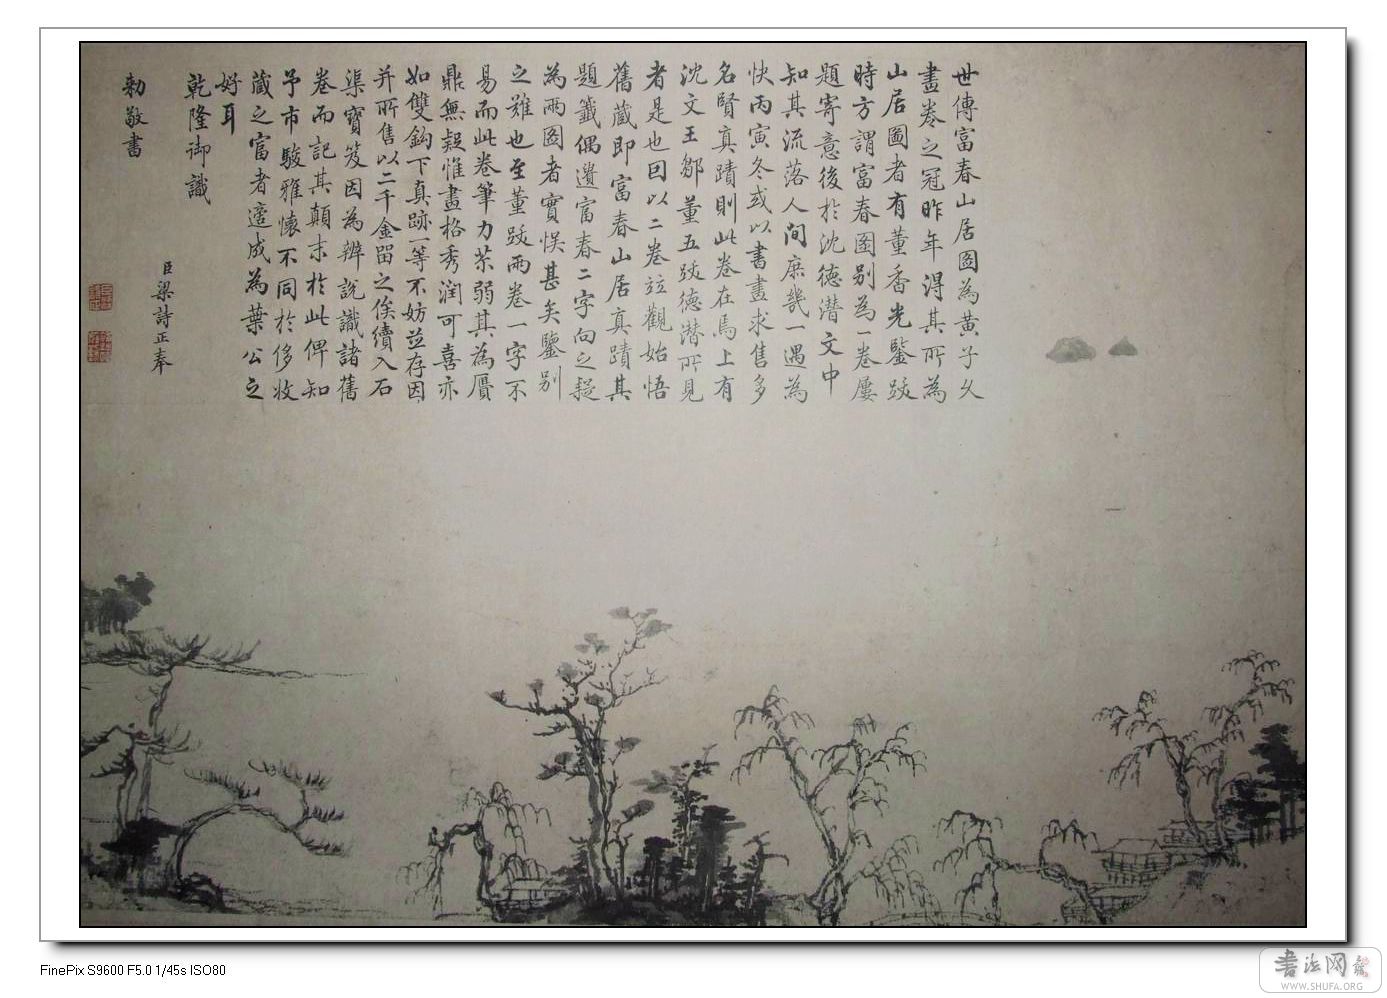 世傳富春山居圖為黃子久
畫卷之冠昨年得其所為
山居圖者有董香光鑒跋
時方謂富春圖别為一卷屢
題寄意後於沈德潛文中
知其流落人間庶幾一遇為
快丙寅冬或以書畫求售多
名賢真蹟則此卷在焉上有
沈文王鄒董五跋德潛所見
者是也因以二卷竝觀始悟
舊藏即富春山居真蹟其
題籤偶遺富春二字向之疑
為兩圖者實悞甚矣鑒别
之難也至董跋兩卷一字不
易而此卷筆力苶弱其為贋
鼎無疑惟畫格秀潤可喜亦
如雙鈎下真跡一等不妨竝存因
并所售以二千金留之俟續入石
渠寶笈因為辨說識諸舊
卷而記其顛末於此俾知
予市駿雅懷不同於侈收
藏之富者適成為葉公之
好耳
乾隆御識
臣梁詩正奉
勅敬書
FinePix S9600 F5.0 1/45s ISO80
書法网
WWW.SHUFA.ORG